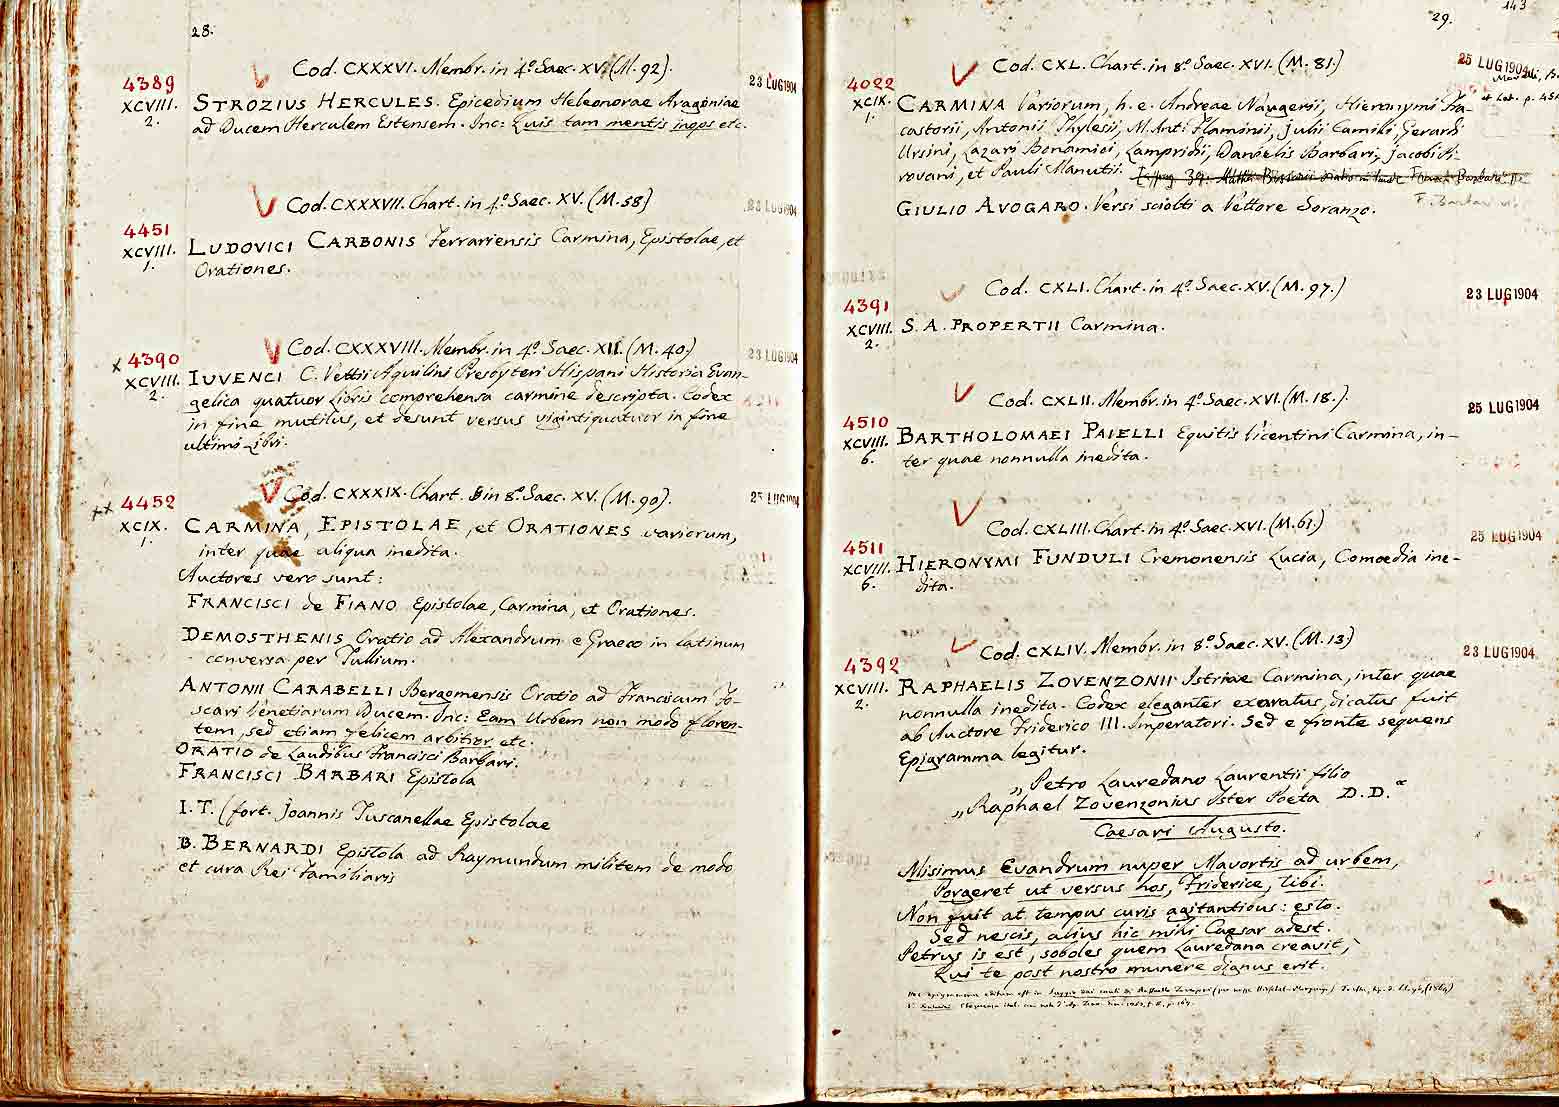 28.
Cod. CXXXVI. Membr. in 4º. Saec. XV. (M. 92).
4389
XCVIII.
2.
23 LUG 1904
STROZIUS HERCULES. Epicedium Heleonorae Aragoniae
ad Ducem Herculem Estensem. Inc: Quis tam mentis inops etc.
Cod. CXXXVII. Chart. in 4º. Saec. XV. (M. 58)
4451
XCVIII.
1.
23 LUG 1904
LUDOVICI CARBONIS Ferrariensis Carmina, Epistolae, et
Orationes.
Cod. CXXXVIII. Membr. in 4º. Saec. XII. (M. 40.)
x 4390
XCVIII.
2.
23 LUG 1904
IUVENCI C. Vettii Aquilini Presbyteri Hispani Historia Evan-
gelica quatuor Libris comprehensa carmine descripta. Codex
in fine mutilus, et desunt versus vigintiquatuor in fine
ultimi Libri.
Cod. CXXXIX. Chart. in 8º. Saec. XV. (M. 90).
xx 4452
XCIX.
1.
25 LUG 1904
CARMINA, EPISTOLAE, et ORATIONES variorum,
inter quae aliqua inedita.
Auctores vero sunt:
FRANCISCI de FIANO Epistolae, Carmina, et Orationes.
DEMOSTHENIS Oratio ad Alexandrum e Graeco in Latinum
conversa per Tullium.
ANTONII CARABELLI Bergomensis Oratio ad Franciscum Fo-
scari Venetiarum Ducem. Inc: Eam Urbem non modo floren-
tem, sed etiam felicem arbitror etc.
ORATIO de Laudibus Francisci Barbari.
FRANCISCI BARBARI Epistola
I. T. (fort. Joannis Tuscanellae Epistolae
B. BERNARDI Epistola ad Raymundum militem de modo
et cura Rei Familiaris
29.
143
Cod. CXL. Chart. in 8º. Saec. XVI. (M. 81.)
4022
XCIX.
1.
25 LUG 1904
CARMINA Variorum, h. e. Andreae Naugerii, Hieronymi Fra-
castorii, Antonii Thylesii, M. Ant: Flaminii, Julii Camilli, Gerardi
Ursini, Lazari Bonamici, Lampridii, Danielis Barbari, Jacobi Pi-
rovani, et Pauli Manutii.
GIULIO AVOGARO. Versi sciolti a Vettore Soranzo.
Cod. CXLI. Chart. in 4º. Saec. XV. (M. 97.)
4391
XCVIII.
2.
23 LUG 1904
S. A. PROPERTII Carmina.
Cod. CXLII. Membr. in 4º. Saec. XVI. (M. 18.).
4510
XCVIII.
6.
25 LUG 1904
BARTHOLOMAEI PAIELLI Equitis Vicentini Carmina, in-
ter quae nonnulla inedita.
Cod. CXLIII. Chart. in 4º. Saec. XVI. (M. 61.)
4511
XCVIII.
6.
25 LUG 1904
HIERONYMI FUNDULI Cremonensis Lucia, Comoedia ine-
dita.
Cod. CXLIV. Membr. in 8º. Saec. XV. (M. 13)
4392
XCVIII.
2.
23 LUG 1904
RAPHAELIS ZOVENZONII Istriae Carmina, inter quae
nonnulla inedita. Codex eleganter exaratus, dicatus fuit
ab Auctore Friderico III. Imperatori. Sed e fronte sequens
Epigramma legitur.
„Petro Lauredano Laurentii filio
„Raphael Zovenzonius Ister Poeta D. D.“
Caesari Augusto.
Misimus Evandrum nuper Mavortis ad urbem,
Porgeret ut versus hos, Friderice, tibi.
Non fuit at tempus curis agitantibus: esto.
Sed nescis, alius hic mihi Caesar adest.
Petrus is est, soboles quem Lauredana creavit,
Qui te post nostro munere dignus erit.